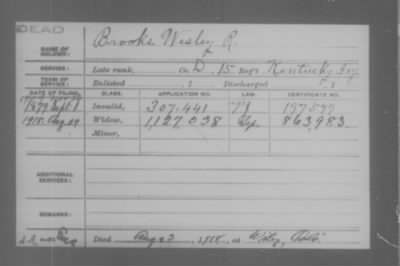 DEAD
NAME OF SOLDIER: Brooks Wesley R.
SERVICE: Late rank, Co. D, 15 Reg't Kentucky Inf.
TERM OF SERVICE: Enlisted , 1 Discharged , 1
DATE OF FILING. CLASS. APPLICATION NO. LAW. CERTIFICATE NO.
1879 Sept. 1 Invalid, 307.441 197.599
1918. Aug 29 Widow, 1,127,038 863,983
Minor,
ADDITIONAL SERVICES:
REMARKS:
Died Aug 3, 1918, at Wiley, Colo.